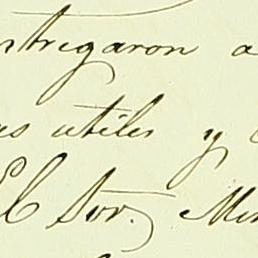 ntregaron a
as utiles y
El Sor. Min